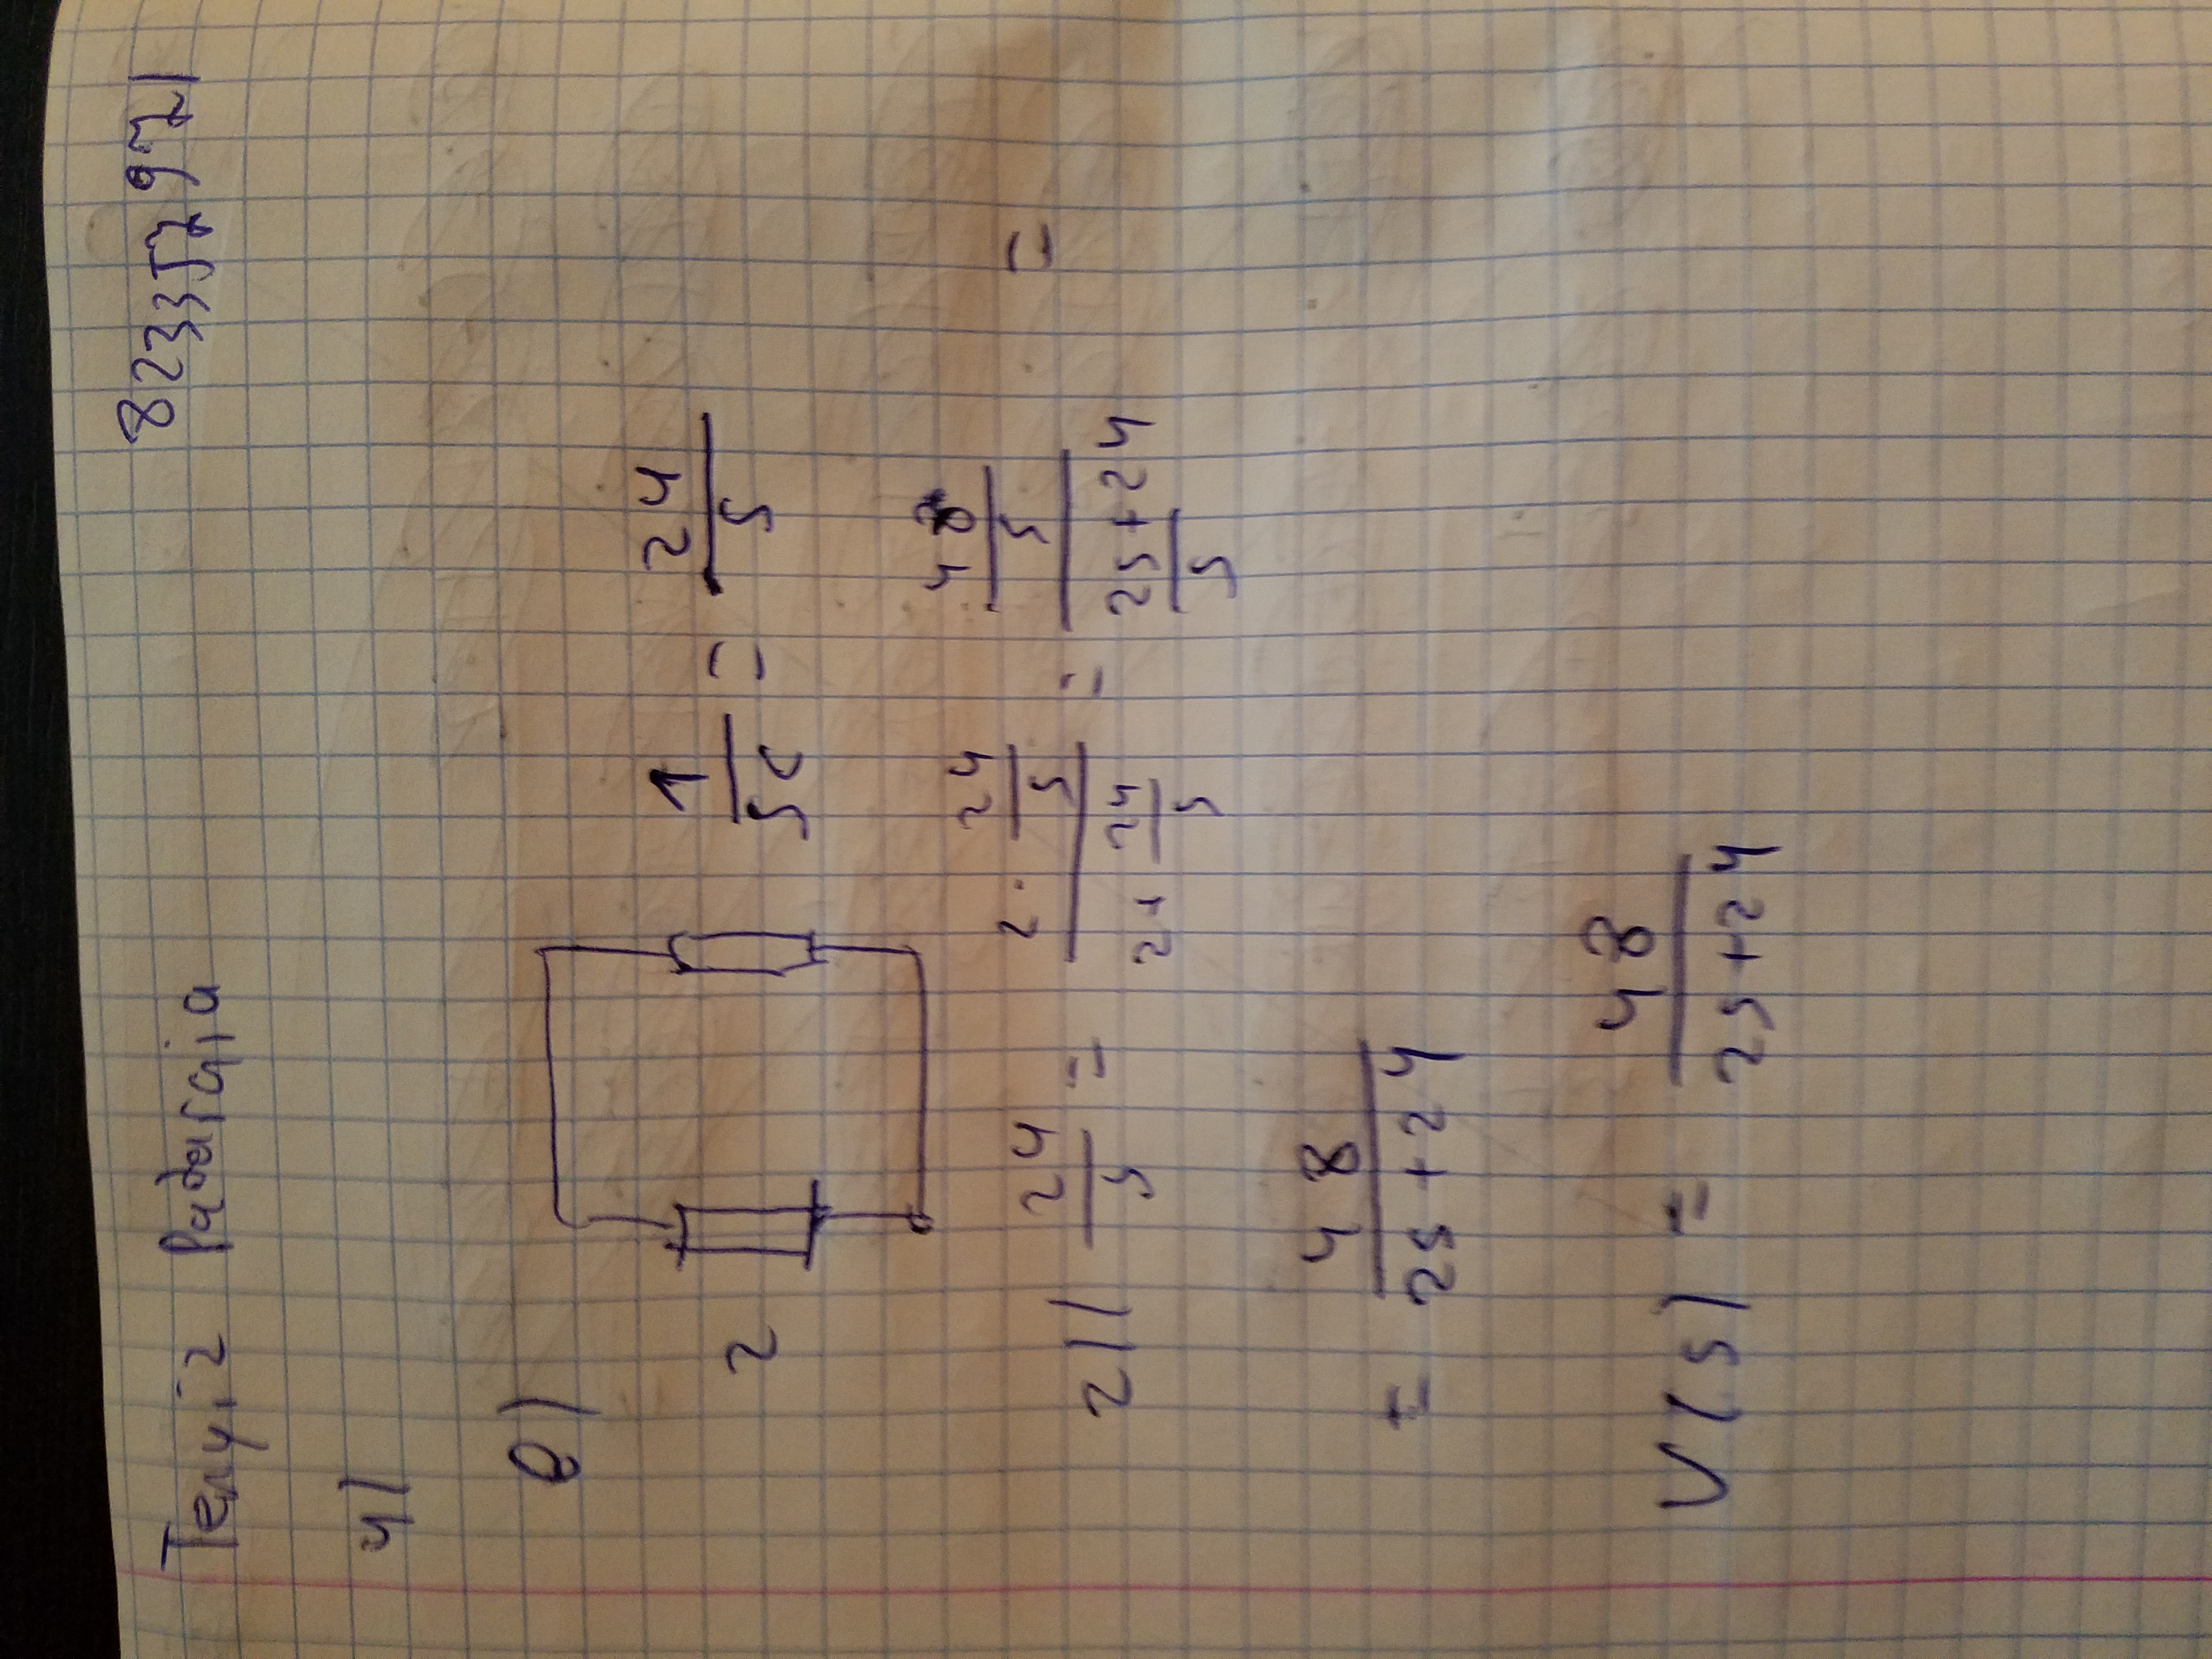 Tengiz Pataraia 823357971
4)
e)
2 1/sC = 24/s
2 || 24/s = (2 · 24/s)/(2 + 24/s) = (48/s)/((2s+24)/s) =
= 48/(2s+24)
V(s) = 48/(2s+24)